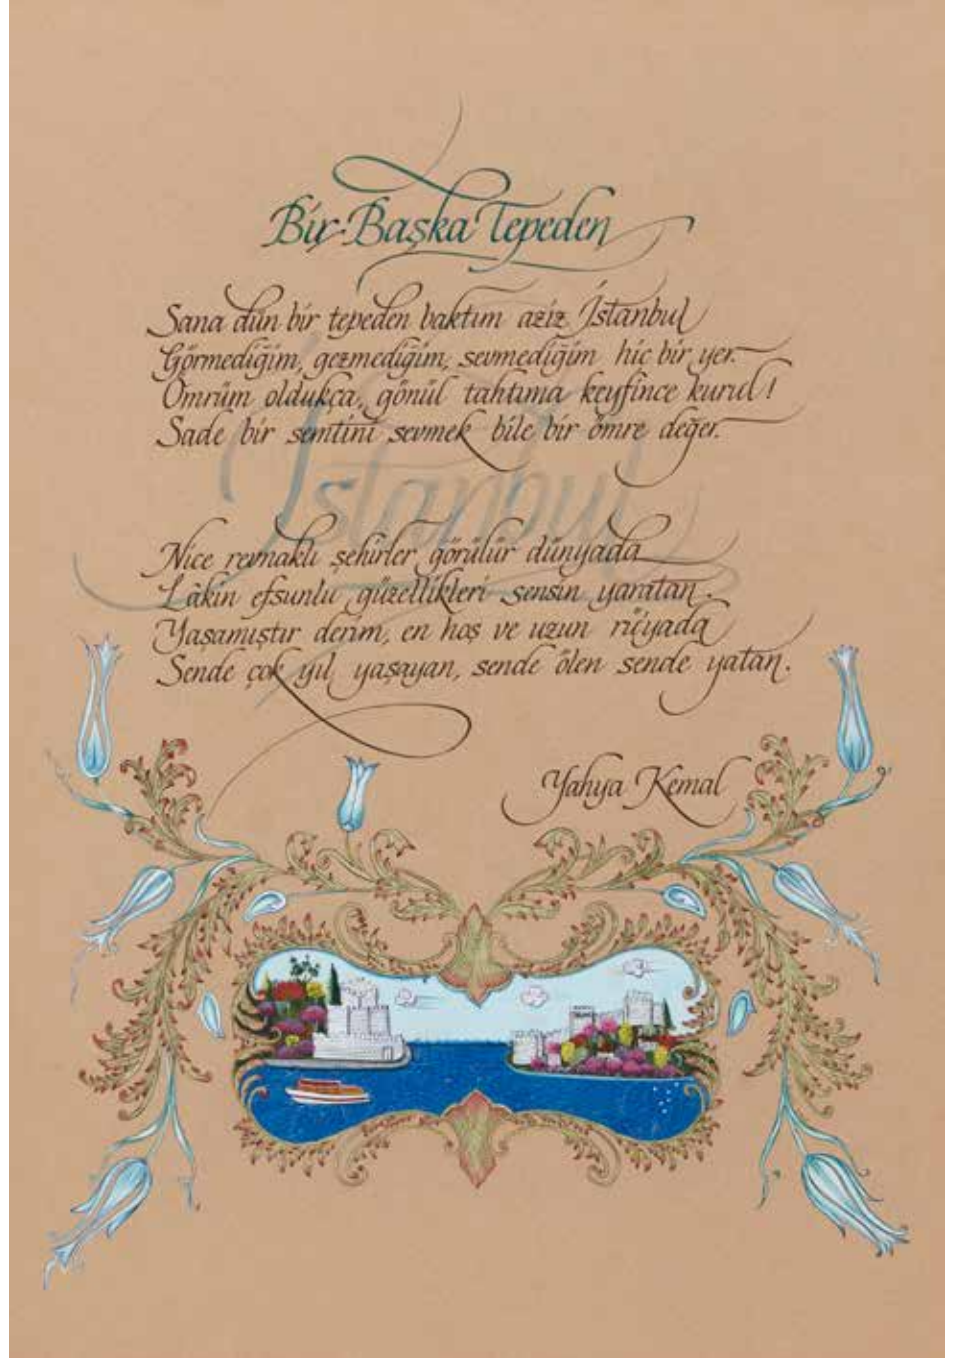 Bir Başka Tepeden
Sana dün bir tepeden baktım aziz İstanbul
Görmediğim, gezmediğim, sevmediğim hiç bir yer.
Ömrüm oldukça, gönül tahtıma keyfince kurul!
Sade bir semtini sevmek bile bir ömre değer.
İstanbul
Nice revnaklı şehirler görülür dünyada
Lâkin efsunlu güzellikleri sensin yaratan.
Yaşamıştır derim, en hoş ve uzun rüyada
Sende çok yıl yaşayan, sende ölen sende yatan.
Yahya Kemal